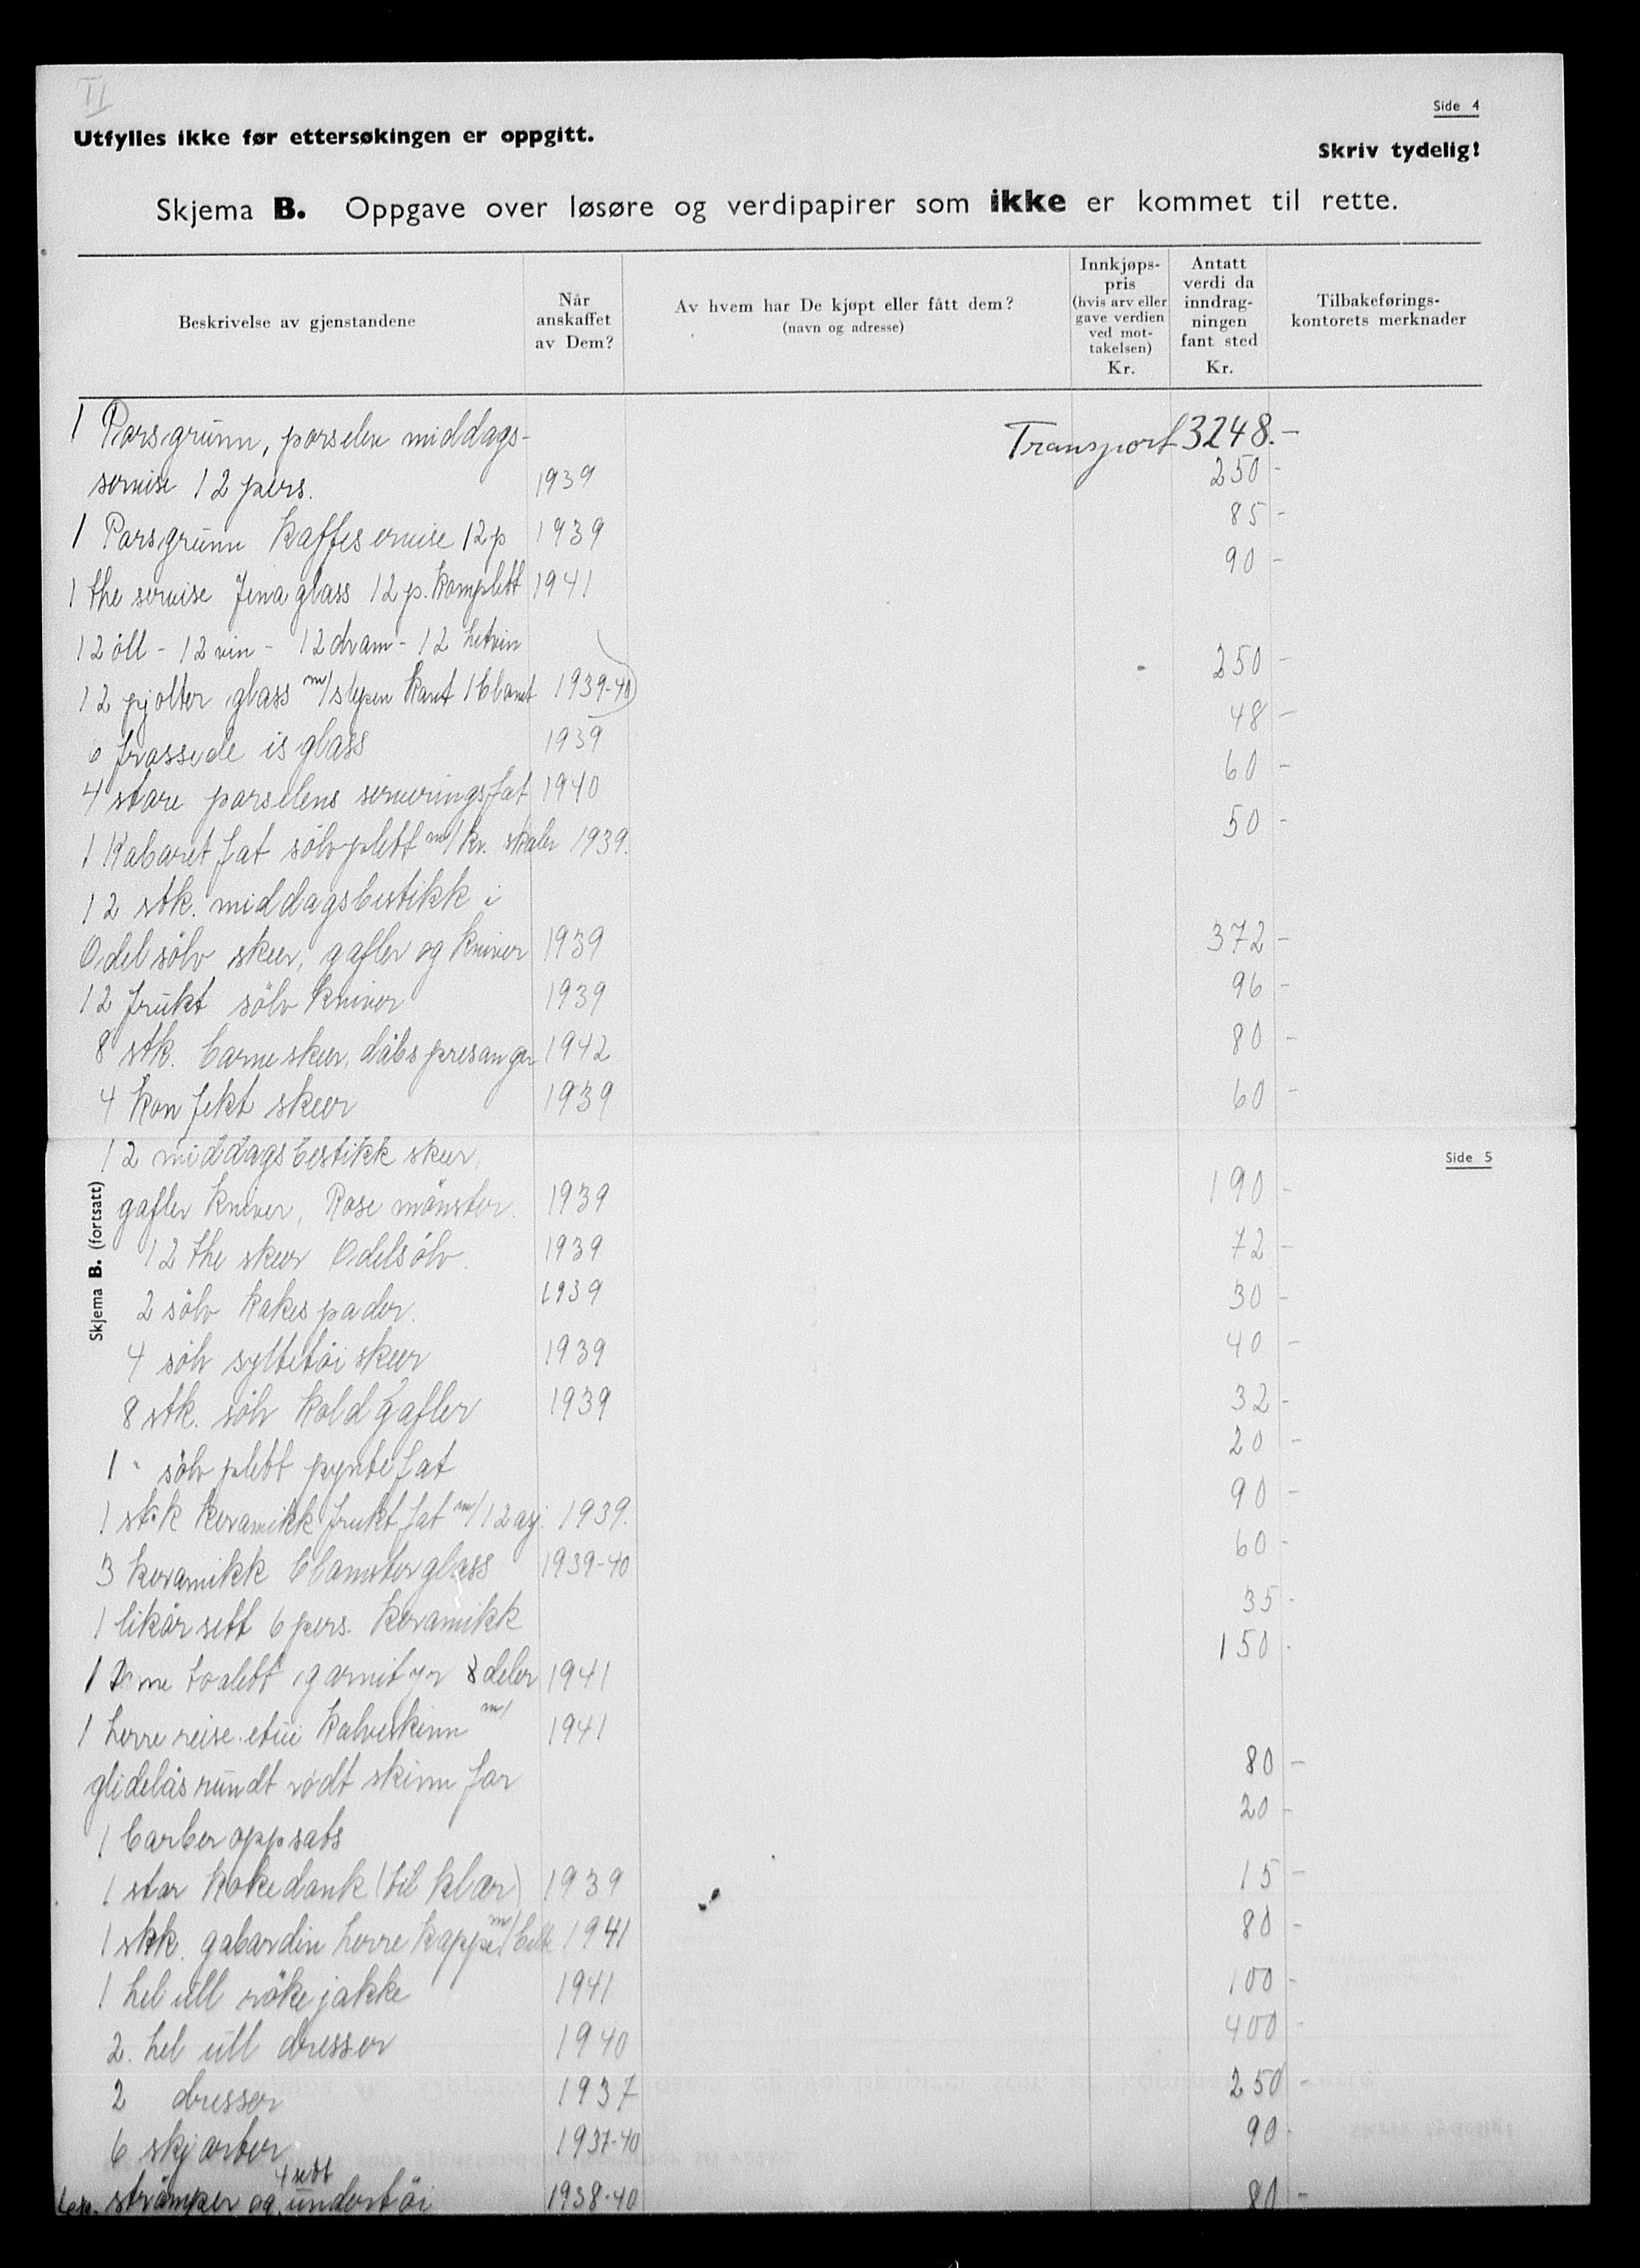 II
Side 4
Utfylles ikke før ettersøkingen er oppgitt.
Skriv tydelig!
Skjema B. Oppgave over løsøre og verdipapirer som ikke er kommet til rette.
Beskrivelse av gjenstandene
Når anskaffet av Dem?
Av hvem har De kjøpt eller fått dem? (navn og adresse)
Innkjøps-pris (hvis arv eller gave verdien ved mot-takelsen) Kr.
Antatt verdi da inndrag-ningen fant sted Kr.
Tilbakeførings-kontorets merknader
Transport 3248.-
1 Porsgrunn, porselen middags-
servise 12 pers. 1939 250 -
1 Porsgrunn Kaffeservise 12 p 1939 85 -
1 the servise Jena glass 12 p. komplett 1941 90 -
12 öll - 12 vin - 12 dram - 12 hetvin
12 pjolter glass m/ slepen kant 1939-40 250 -
6 frosside is glass 1939 48 -
4 store porselens serveringsfat 1940 60 -
1 Kabaret fat sölvplett m/ kr. skaler 1939. 50 -
12 stk. middagsbestikk i
Odel sölv skeer, gafler og kniver 1939 372 -
12 frukt sölv kniver 1939 96 -
8 stk. barneskeer, dåbs presanger 1942 80 -
4 konfekt skeer 1939 60 -
12 middags bestikk skeer,
Side 5
Skjema B. (fortsatt)
gafler kniver, Rose mönster. 1939 190 -
12 the skeer Odelsölv. 1939 72 -
2 sölv kakespader. 1939 30 -
4 sölv syltetöi skeer 1939 40 -
8 stk. sölv koldgafler 1939 32 -
1 " sölv plett pyntefat 20 -
1 stk keramikk frukt fat m/ 12 asj. 1939. 90 -
3 keramikk blomsterglass 1939-40 60 -
1 likör sett 6 pers. keramikk 35 -
1 Dame toalett garnityr 8 deler 1941 150 -
1 herre reise etui kalveskinn m/ 1941
glidelås rundt rödt skinn for 80 -
1 barber oppsats 20 -
1 stor kokedank (til klær) 1939 15 -
1 stk. gabardin herre kappe m/ belte 1941 80 -
1 hel ull röke jakke 1941 100 -
2. hel ull dresser 1940 400 -
2 dresser 1937 250 -
6 skjorter 1937-40 90 -
strömper og 4 sett undertöi 1938-40 80 -